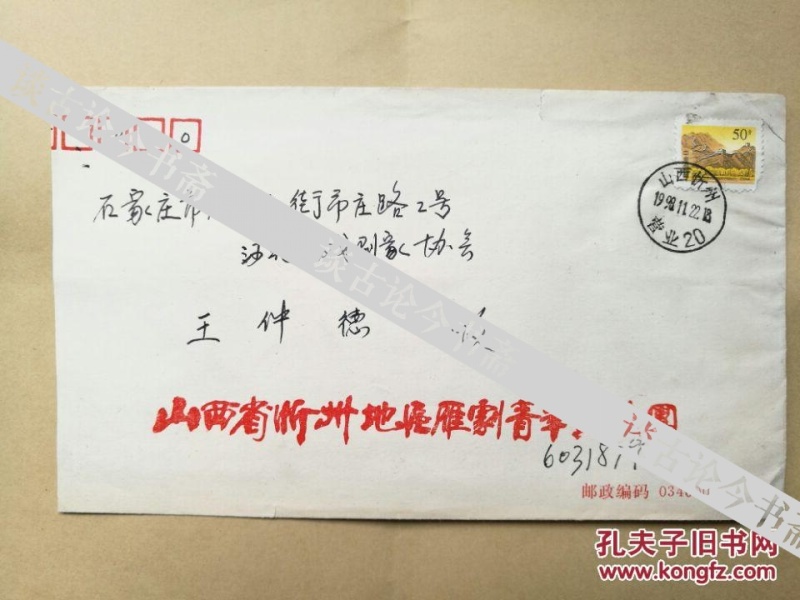 0
50分
山西忻州
1998.11.22.18
营业20
石家庄市 街市庄路2号
剧家协会
王仲德
山西省忻州地区雁剧青年 团
60318
邮政编码 0340
谈古论今书斋
谈古论今书斋
谈古论今书斋
孔夫子旧书网
www.kongfz.com